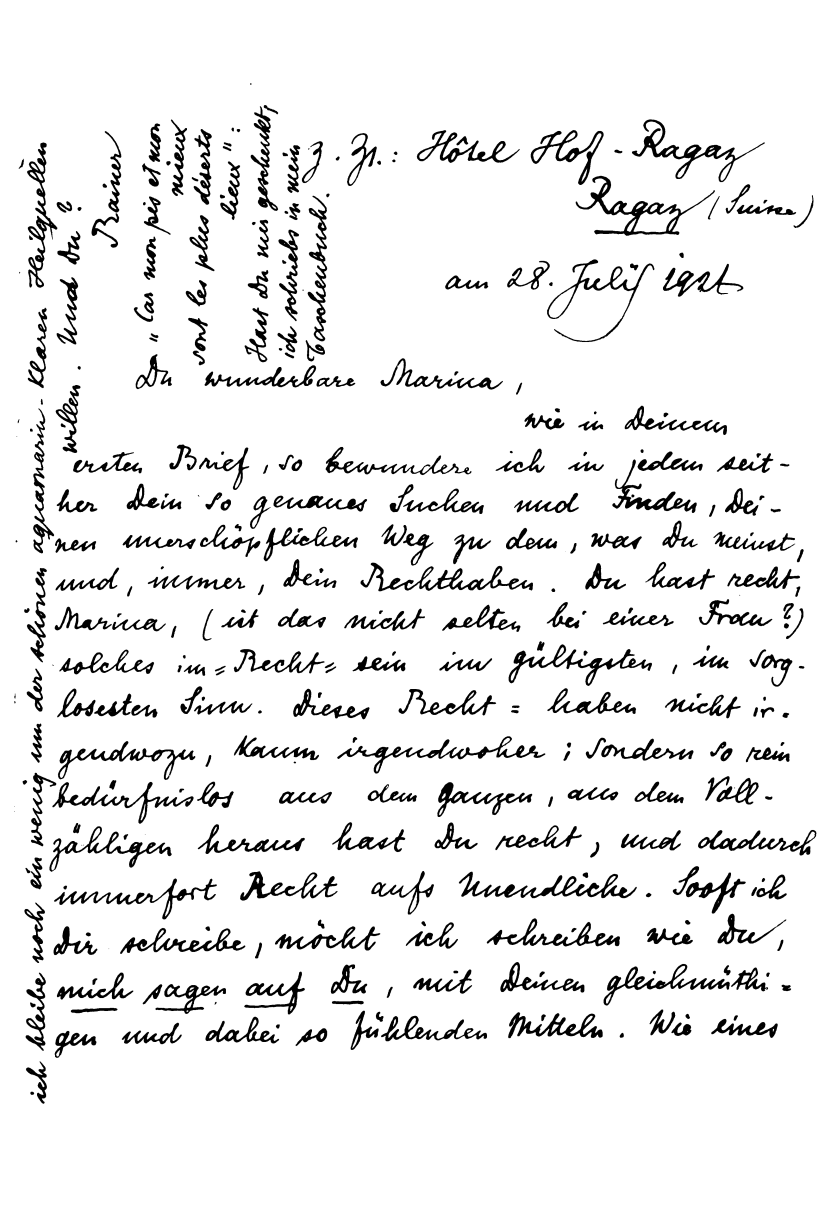 z. Zt.: Hôtel Hof-Ragaz
Ragaz (Suisse)
am 28. July
Du wunderbare Marina,
wie in Deinem
ersten Brief, so bewundere ich in jedem seit-
her Dein so genaues Suchen und Finden, Dei-
nen unerschöpflichen Weg zu dem, was Du meinst,
und, immer, Dein Rechthaben. Du hast recht,
Marina, (ist das nicht selten bei einer Frau?)
solches im=Recht=sein im gültigsten, im sorg-
losesten Sinn. Dieses Recht=haben nicht ir-
gendwozu, kaum irgendwoher; sondern so rein
bedürfnislos aus dem Ganzen, aus dem Voll-
zähligen heraus hast Du recht, und dadurch
immerfort Recht aufs Unendliche. Sooft ich
Dir schreibe, möcht ich schreiben wie Du,
mich sagen auf Du, mit Deinen gleichmüthi=
gen und dabei so fühlenden Mitteln. Wie eines
ich bleibe noch ein wenig um der schönen aquamarin-klaren Heilquellen
willen. Und Du?
Rainer
„Car mon pis et mon
mieux
sont les plus déserts
lieux":
Hast Du mir geschenkt,
ich schriebs in mein
Taschenbuch.